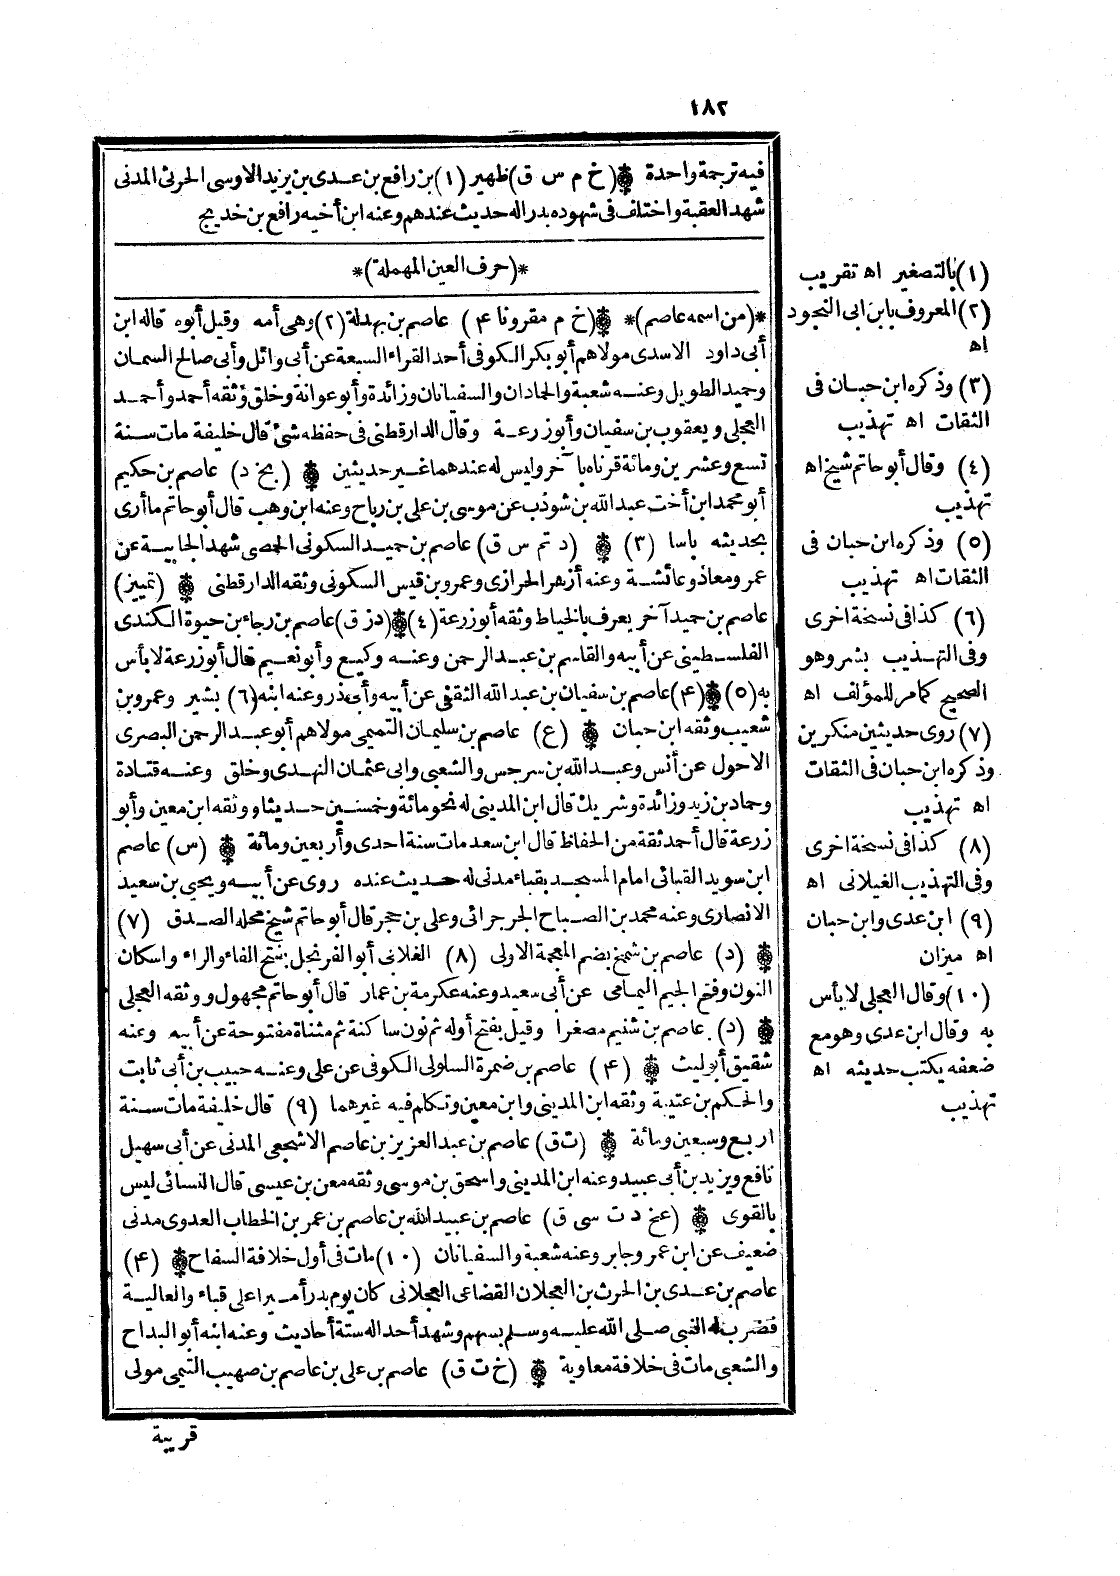 ١٨٢
فيه ترجمة واحدة (خ م س ق) ظهير (١) بن رافع بن عدى بن يزيد الاوسى الحرثى المدنى
شهد العقبة واختلف فى شهوده بدرا له حديث عندهم وعنه ابن أخيه رافع بن خديج
*(حرف العين المهملة)*
*(من اسمه عاصم)* (خ م مقرونا ۴) عاصم بن بهدلة (٢) وهى أمه وقيل أبوه قاله ابن
أبى داود الاسدى مولاهم أبو بكر الكوفى أحد القراء السبعة عن أبى وائل وأبى صالح السمان
وحميد الطويل وعنه شعبة والحمادان والسفيانان وزائدة وأبو عوانة وخلق وثقه أحمد وأحمد
العجلى ويعقوب بن سفيان وأبو زرعة وقال الدارقطنى فى حفظه شئ قال خليفة مات سنة
تسع وعشرين ومائة قرناه بآخر وليس له عندهما غير حديثين (بخ د) عاصم بن حكيم
أبو محمد ابن أخت عبد الله بن شوذب عن موسى بن على بن رباح وعنه ابن وهب قال أبو حاتم ما أرى
بحديثه باسا (٣) (د تم س ق) عاصم بن حميد السكونى الحمصى شهد الجابية عن
عمر ومعاذ وعائشة وعنه أزهر الحرازى وعمرو بن قيس السكونى وثقه الدارقطنى (تمييز)
عاصم بن حميد آخر يعرف بالخياط وثقه أبو زرعة (٤) (د ز ق) عاصم بن رجاء بن حيوة الكندى
الفلسطينى عن أبيه والقاسم بن عبد الرحمن وعنه وكيع وأبو نعيم قال أبو زرعة لا بأس
به (٥) (۴) عاصم بن سفيان بن عبد الله الثقفى عن أبيه وأبى ذر وعنه ابنه (٦) بشير وعمرو بن
شعيب وثقه ابن حبان (ع) عاصم بن سليمان التميمى مولاهم أبو عبد الرحمن البصرى
الاحول عن أنس وعبد الله بن سرجس والشعبى وابى عثمان النهدى وخلق وعنه قتادة
وحماد بن زيد وزائدة وشريك قال ابن المدينى له نحو مائة وخمسين حديثا ووثقه ابن معين وأبو
زرعة قال أحمد ثقة من الحفاظ قال ابن سعد مات سنة احدى وأربعين ومائة (س) عاصم
ابن سويد القبائى امام المسجد بقباء مدنى له حديث عنده روى عن أبيه ويحيى بن سعيد
الانصارى وعنه محمد بن الصباح الجرجرائى وعلى بن حجر قال أبو حاتم شيخ محله الصدق (٧)
(د) عاصم بن شميخ بضم المعجمة الاولى (٨) الغلانى أبو الفرنجل بفتح الفاء والراء واسكان
النون وفتح الجيم اليمامى عن أبى سعيد وعنه عكرمة بن عمار قال أبو حاتم مجهول ووثقه العجلى
(د) عاصم بن شنيم مصغرا وقيل بفتح أوله ثم نون ساكنة ثم مثناة مفتوحة عن أبيه وعنه
شقيق أبو ليث (۴) عاصم بن ضمرة السلولى الكوفى عن على وعنه حبيب بن أبى ثابت
والحكم بن عتيبة وثقه ابن المدينى وابن معين وتكلم فيه غيرهما (٩) قال خليفة مات سنة
اربع وسبعين ومائة (ت ق) عاصم بن عبد العزيز بن عاصم الاشجعى المدنى عن أبى سهيل
نافع ويزيد بن أبى عبيد وعنه ابن المدينى واسحق بن موسى وثقه معن بن عيسى قال النسائى ليس
بالقوى (عخ د ت سى ق) عاصم بن عبيد الله بن عاصم بن عمر بن الخطاب العدوى مدنى
ضعيف عن ابن عمر وجابر وعنه شعبة والسفيانان (١٠) مات فى أول خلافة السفاح (۴)
عاصم بن عدى بن الحرث بن العجلان القضاعى العجلانى كان يوم بدر أميرا على قباء والعالية
فضرب له النبى صلى الله عليه وسلم بسهم وشهد أحدا له ستة أحاديث وعنه ابنه أبو البداح
والشعبى مات فى خلافة معاوية (خ ت ق) عاصم بن على بن عاصم بن صهيب التيمى مولى
قريبة
(١) بالتصغير اه تقريب
(٢) المعروف بابن ابى النجود
اه
(٣) وذكره ابن حبان فى
الثقات اه تهذيب
(٤) وقال أبو حاتم شيخ اه
تهذيب
(٥) وذكره ابن حبان فى
الثقات اه تهذيب
(٦) كذا فى نسخة اخرى
وفى التهذيب بشر وهو
الصحيح كما مر للمؤلف اه
(٧) روى حديثين منكرين
وذكره ابن حبان فى الثقات
اه تهذيب
(٨) كذا فى نسخة اخرى
وفى التهذيب الغيلانى اه
(٩) ابن عدى وابن حبان
اه ميزان
(١٠) وقال العجلى لا بأس
به وقال ابن عدى وهو مع
ضعفه يكتب حديثه اه
تهذيب